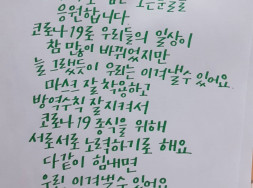 모든분들을
응원합니다
코로나19로 우리들의 일상이
참 많이 바뀌었지만
늘 그랬듯이 우리는 이겨낼수 있어요
마스크 잘 착용하고
방역수칙 잘 지켜서
코로나19 종식을 위해
서로서로 노력하기로 해요
다같이 힘내면
우린 이겨낼수 있어요